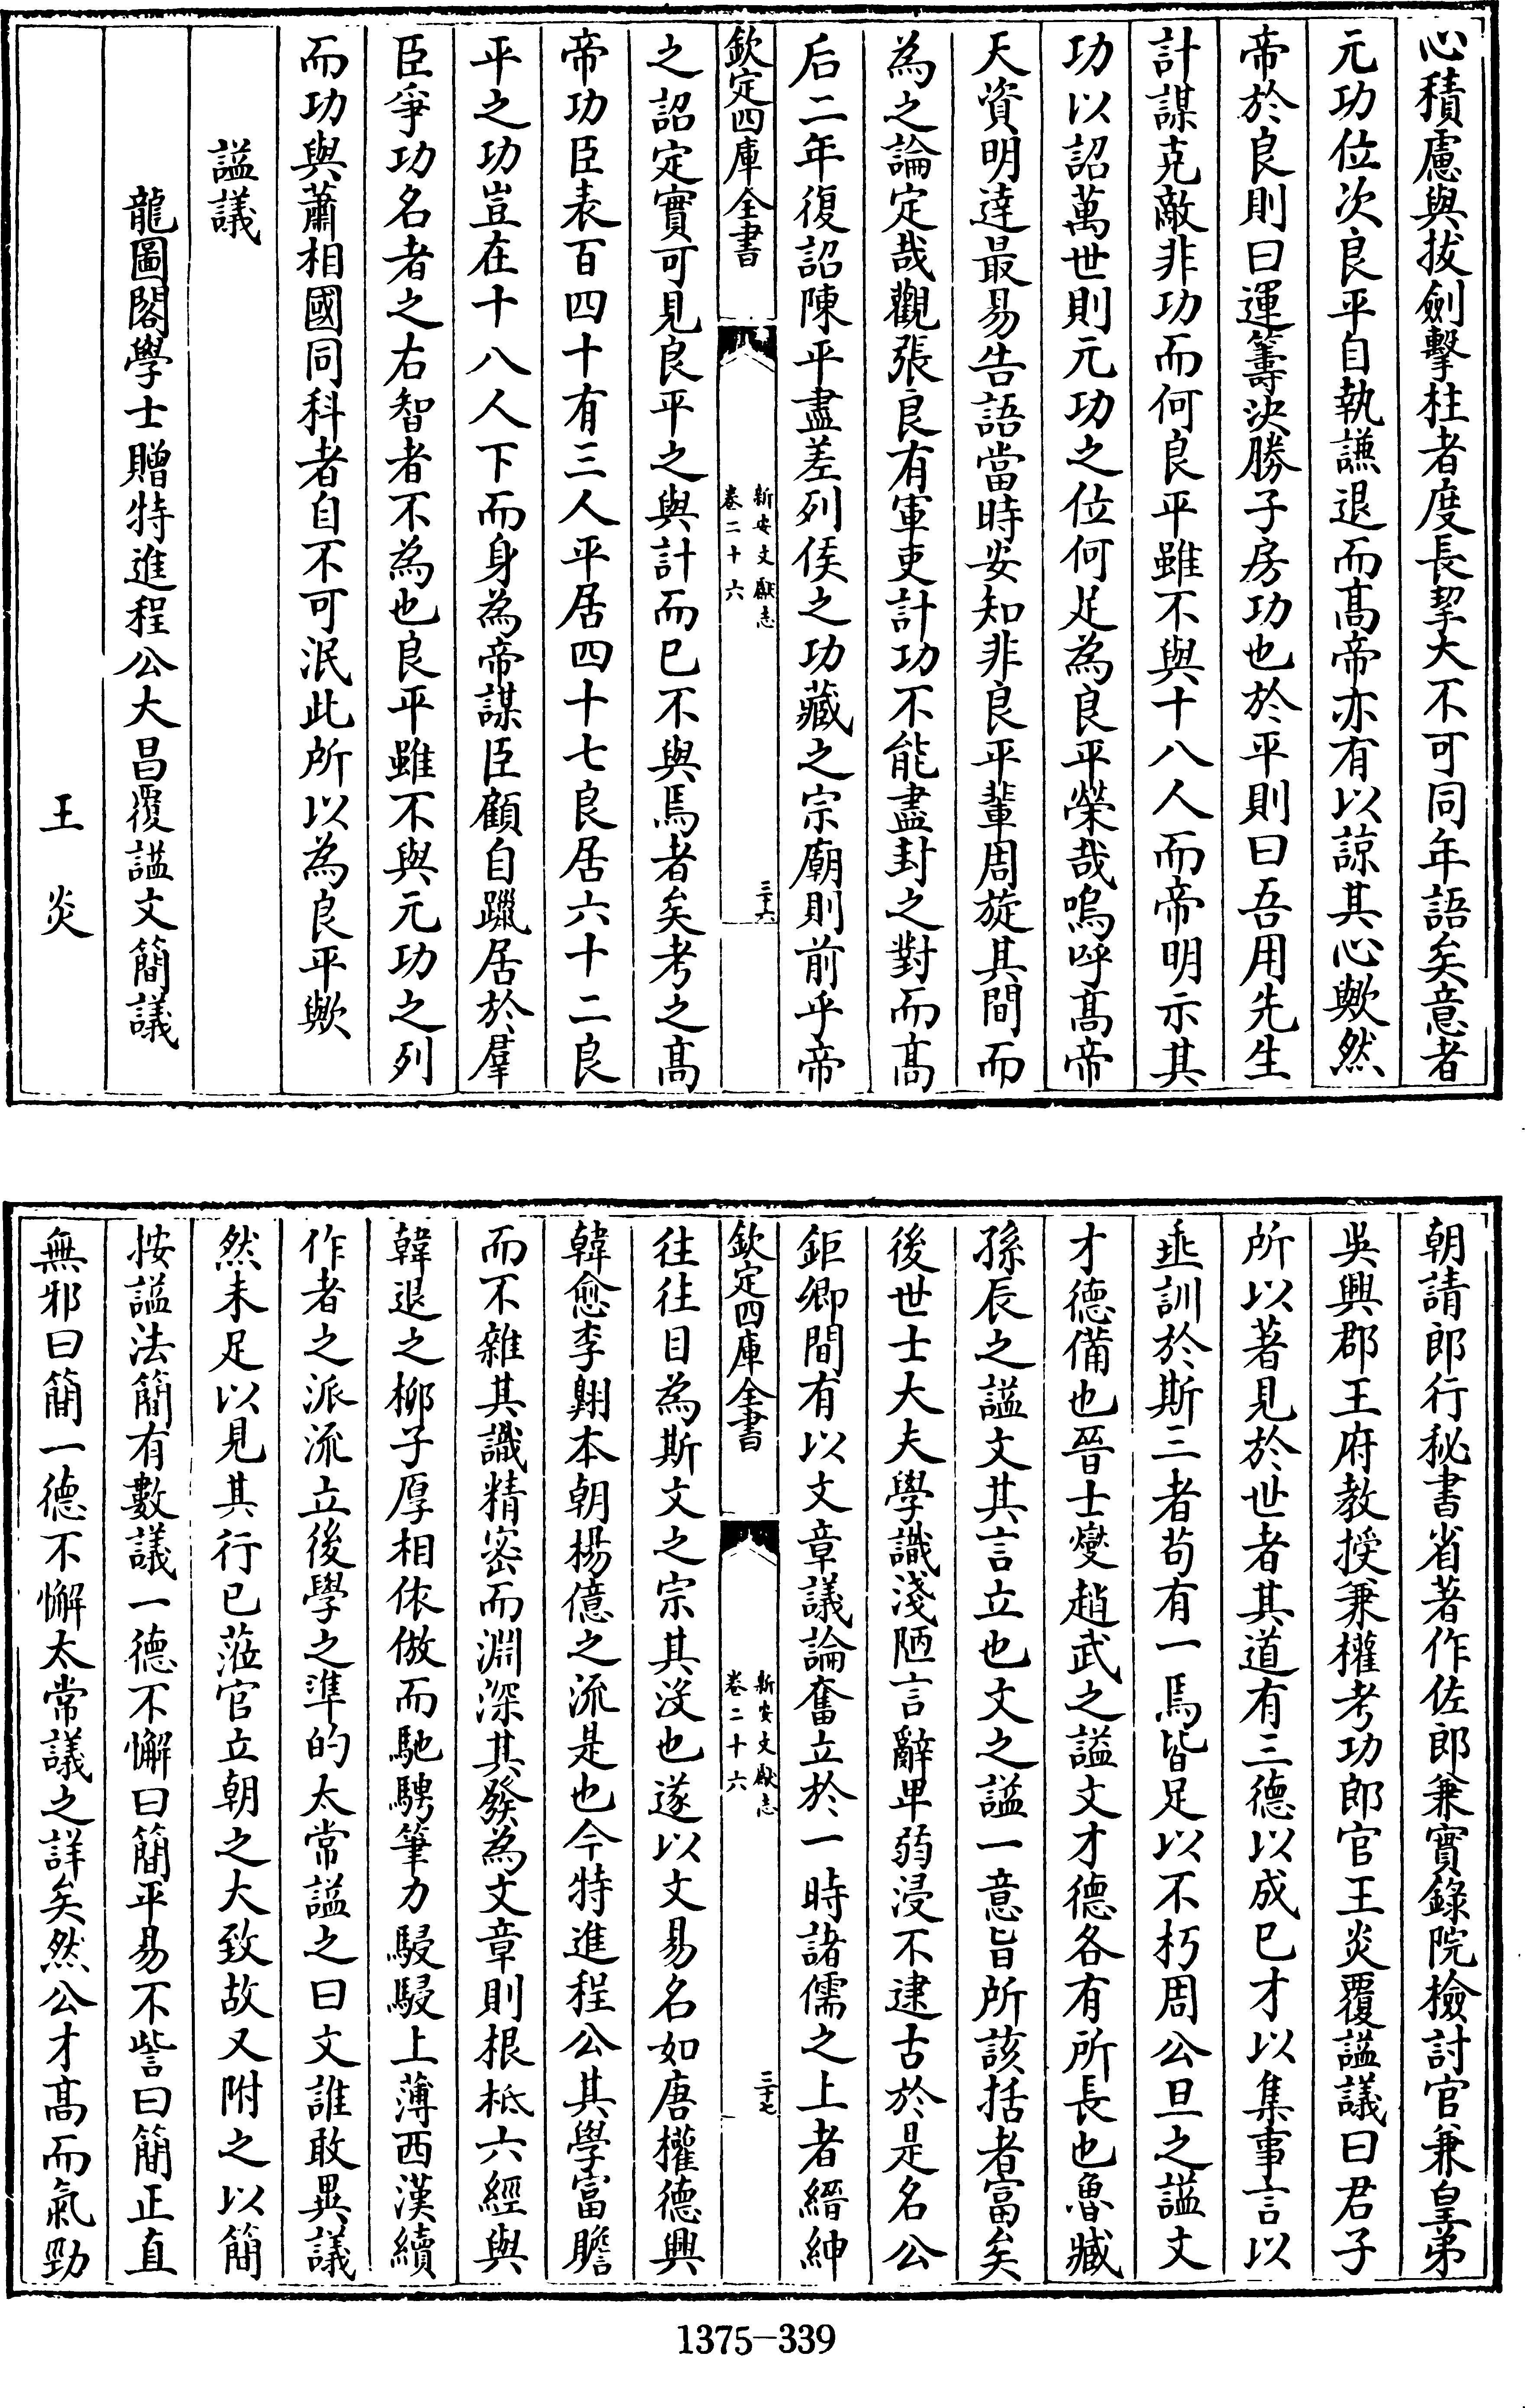 心積慮與拔劍擊柱者度長挈大不可同年語矣意者
元功位次良平自執謙退而髙帝亦有以諒其心歟然
帝於良則曰運籌決勝子房功也於平則曰吾用先生
計謀克敵非功而何良平雖不與十八人而帝明示其
功以詔萬世則元功之位何足為良平榮哉嗚呼髙帝
天資明達最易告語當時安知非良平輩周旋其間而
為之論定哉觀張良有軍吏計功不能盡封之對而髙
后二年復詔陳平盡差列侯之功藏之宗廟則前乎帝
欽定四庫全書
新安文獻志
卷二十六
三十六
之詔定實可見良平之與計而已不與焉者矣考之髙
帝功臣表百四十有三人平居四十七良居六十二良
平之功豈在十八人下而身為帝謀臣顧自躐居於羣
臣爭功名者之右智者不為也良平雖不與元功之列
而功與蕭相國同科者自不可泯此所以為良平歟
謚議
龍圖閣學士贈特進程公大昌覆謚文簡議
王炎
朝請郎行秘書省著作佐郎兼實錄院檢討官兼皇弟
吳興郡王府教授兼權考功郎官王炎覆謚議曰君子
所以著見於世者其道有三德以成已才以集事言以
垂訓於斯三者苟有一焉皆足以不朽周公旦之謚文
才德備也晉士燮趙武之謚文才德各有所長也魯臧
孫辰之謚文其言立也文之謚一意旨所該括者富矣
後世士大夫學識淺陋言辭卑弱浸不逮古於是名公
鉅卿間有以文章議論奮立於一時諸儒之上者縉紳
欽定四庫全書
新安文獻志
卷二十六
三十七
往往目為斯文之宗其沒也遂以文易名如唐權德輿
韓愈李翺本朝楊億之流是也今特進程公其學富贍
而不雜其識精密而淵深其發為文章則根柢六經與
韓退之栁子厚相依倣而馳騁筆力駸駸上薄西漢續
作者之派流立後學之準的太常謚之曰文誰敢異議
然未足以見其行已蒞官立朝之大致故又附之以簡
按謚法簡有數議一德不懈曰簡平易不訾曰簡正直
無邪曰簡一德不懈太常議之詳矣然公才髙而氣勁
1375-339